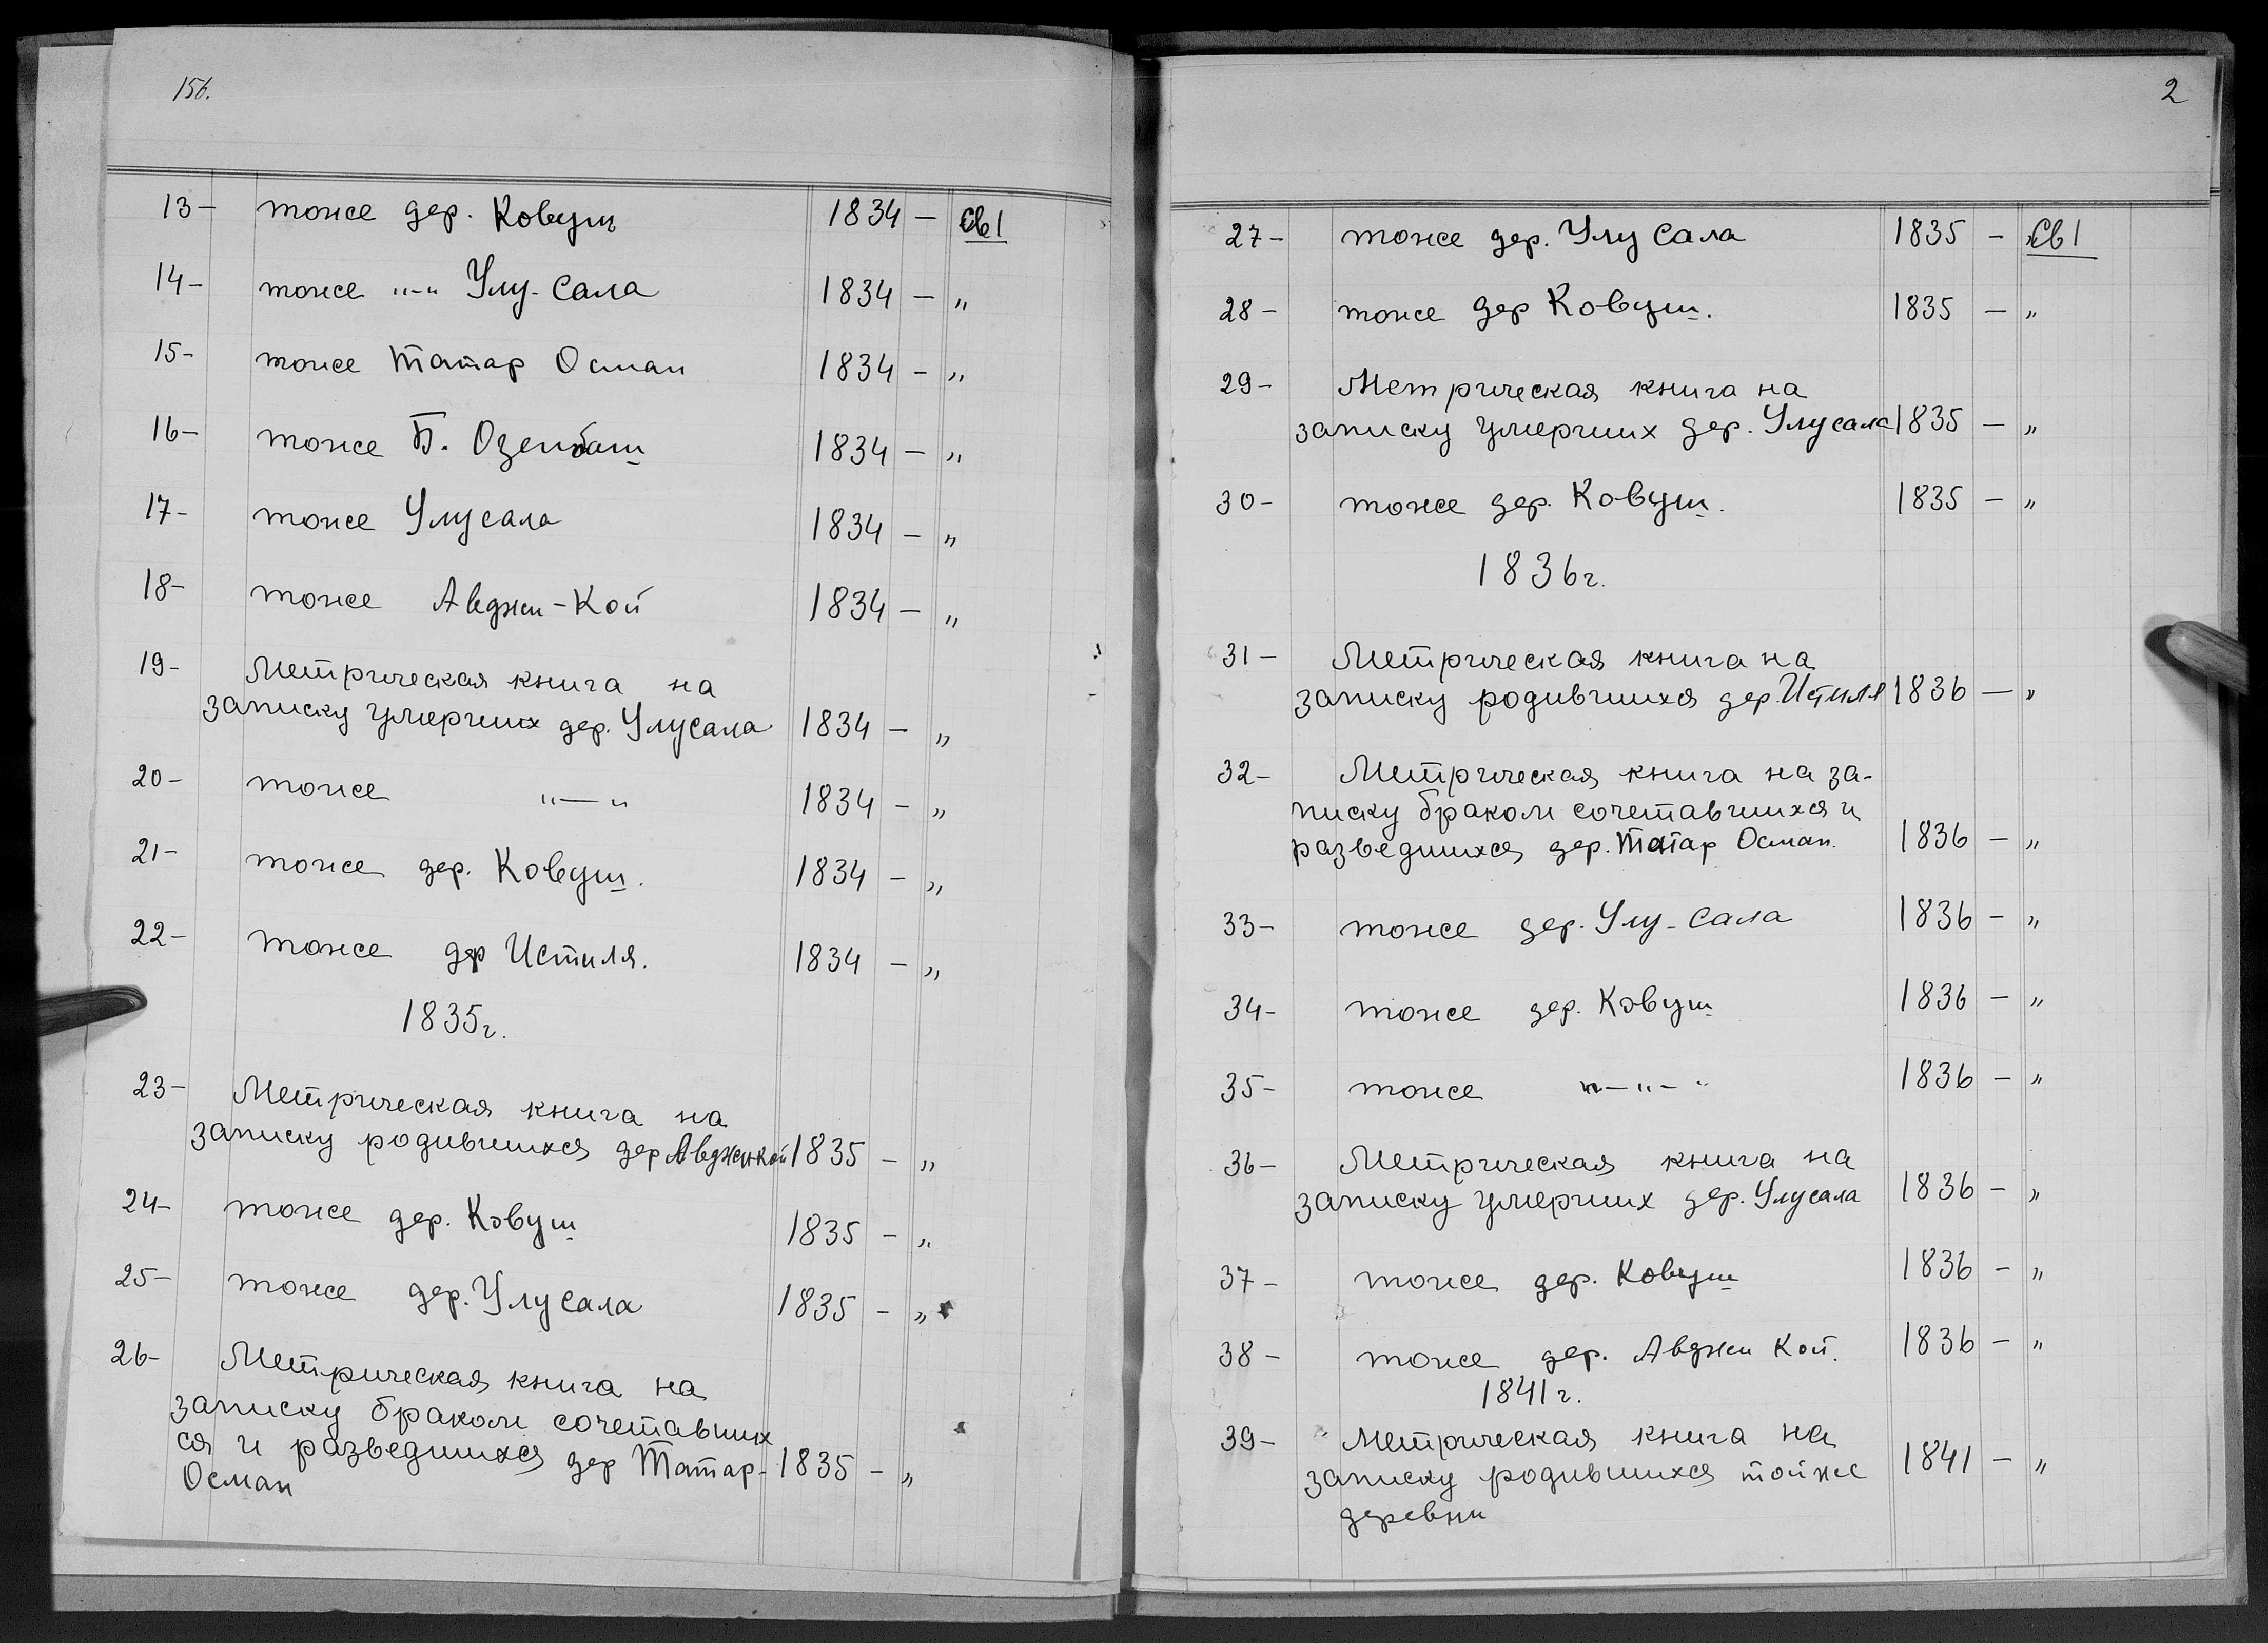 156.
13- тоже дер. Ковуш 1834 - Св 1
14- тоже "-" Улу-Сала 1834 - "
15- тоже Татар Осман 1834 - "
16- тоже Б. Озенбаш 1834 - "
17- тоже Улусала 1834 - "
18- тоже Авджи-Кой 1834 - "
19- Метрическая книга на
записку умерших дер. Улусала 1834 - "
20- тоже "—" 1834 - "
21- тоже дер. Ковуш. 1834 - "
22- тоже дер Истиля. 1834 - "
1835г.
23- Метрическая книга на
записку родившихся дер Авджикой 1835 - "
24- тоже дер. Ковуш 1835 - "
25- тоже дер. Улусала 1835 - "
26- Метрическая книга на
записку браком сочетавших
ся и разведшихся дер Татар- 1835 - "
Осман
2
27- тоже дер. Улу Сала 1835 - Св 1
28- тоже дер Ковуш. 1835 - "
29- Метрическая книга на
записку умерших дер. Улусала 1835 - "
30- тоже дер. Ковуш. 1835 - "
1836г.
31- Метрическая книга на
записку родившихся дер. Истиля 1836 - "
32- Метрическая книга на за-
писку браком сочетавшихся и
разведшихся дер. Татар Осман. 1836 - "
33- тоже дер. Улу-Сала 1836 - "
34- тоже дер. Ковуш 1836 - "
35- тоже "-"-" 1836 - "
36- Метрическая книга на
записку умерших дер. Улусала 1836 - "
37- тоже дер. Ковуш 1836 - "
38- тоже дер. Авджи Кой. 1836 - "
1841г.
39- Метрическая книга на
записку родившихся тойже 1841 - "
деревни